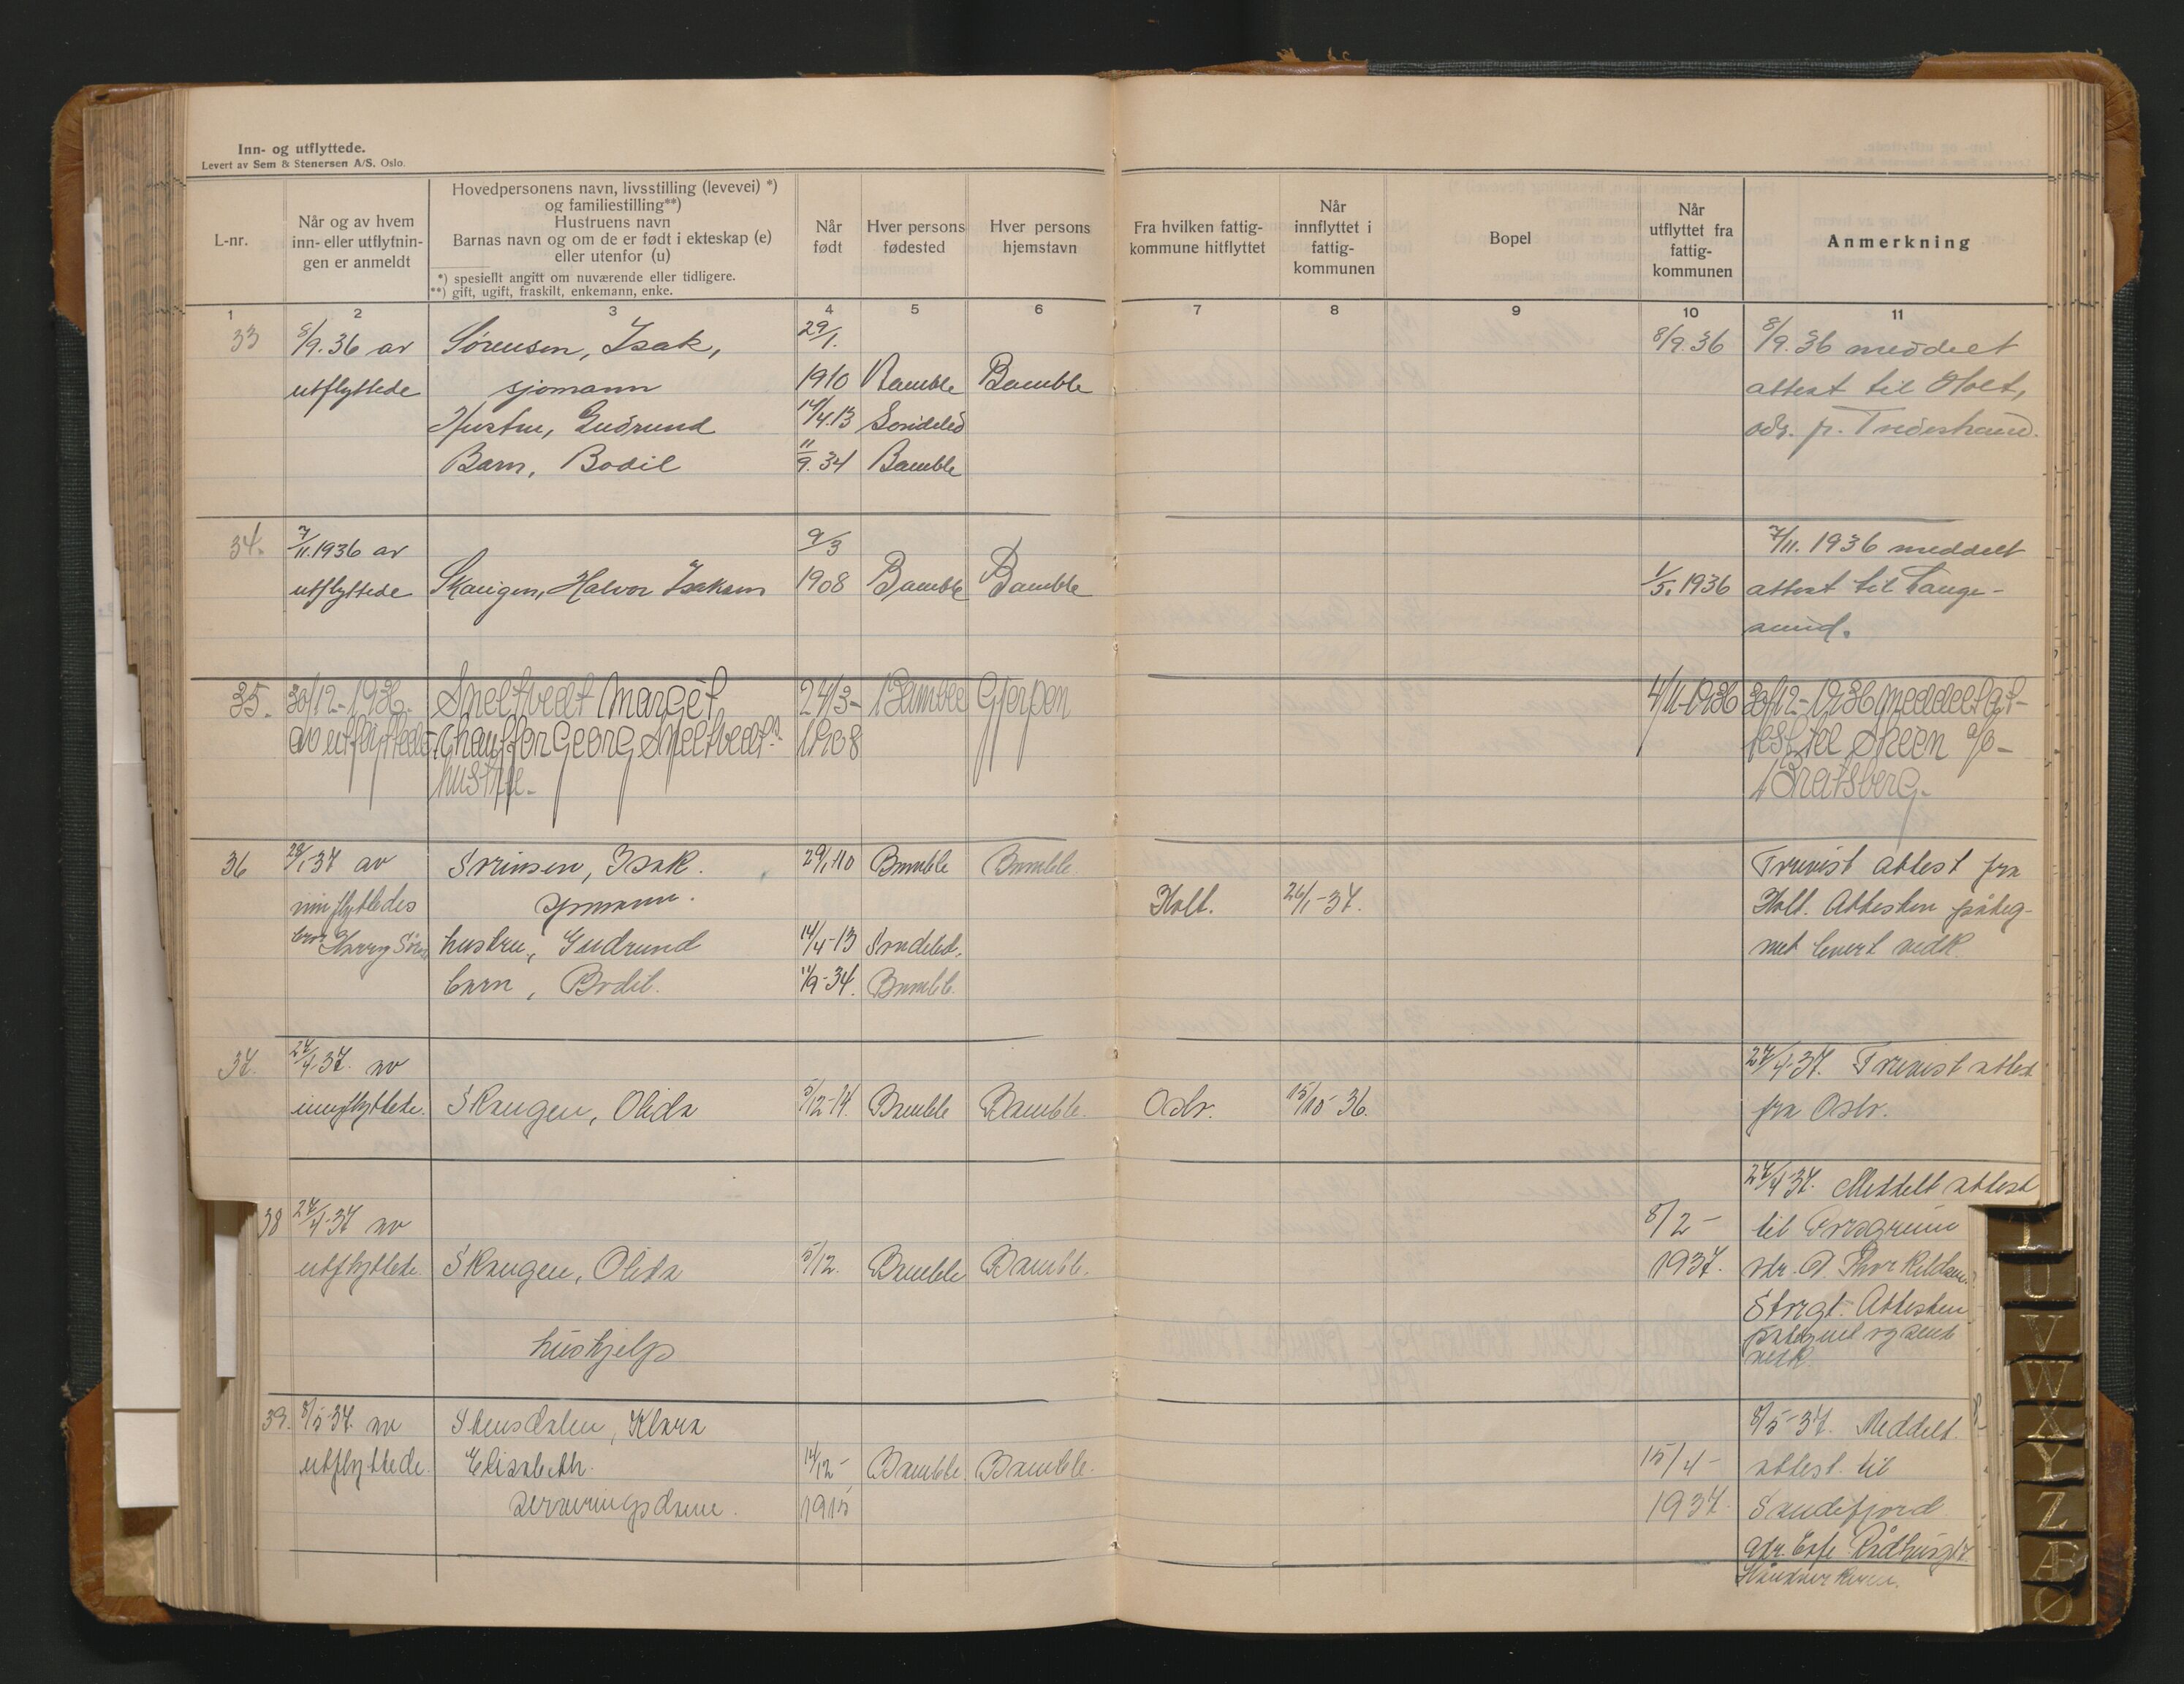 Inn- og utflyttede.
Levert av Sem & Stenersen A/S. Oslo.
L-nr.
Når og av hvem
inn- eller utflytnin-
gen er anmeldt
Hovedpersonens navn, livsstilling (levevei) *)
og familiestilling**)
Hustruens navn
Barnas navn og om de er født i ekteskap (e)
eller utenfor (u)
*) spesielt angitt om nuværende eller tidligere.
**) gift, ugift, fraskilt, enkemann, enke.
Når
født
Hver persons
fødested
Hver persons
hjemstavn
Fra hvilken fattig-
kommune hitflyttet
Når
innflyttet i
fattig-
kommunen
Bopel
Når
utflyttet fra
fattig-
kommunen
Anmerkning
1 2 3 4 5 6 7 8 9 10 11
33 8/9.36 av Sørensen, Isak, 29/1. 8/9.36 8/9.36 meddelt
utflyttede sjømann 1910 Bamble Bamble attest til Holt,
Hustru, Gudrund 14/4.13 Søndeled adr. pr. Tvedestrand.
Barn, Bodil 11/9.34 Bamble
34. 7/11.1936 av 9/3 7/11.1936 meddelt
utflyttede Skaugen, Halvor Isaksen 1908 Bamble Bamble 1/5.1936 attest til Lange-
sund.
35. 30/12-1936. Smeltvedt Margèt 24/3- Bamble Gjerpen 4/11-1936 30/12-1936 meddelt at-
av utflyttede. Chauffør Georg Smeltvedts 1908 test til Skien a/o-
hustru. Bratsberg.
36 28/1-37 av Sørensen, Isak. 29/1-10 Bamble Bamble. Forevist attest fra
innflyttedes sjømann. Holt. 26/1-37. Holt. Attesten påteg-
bror Harry Sören hustru, Gudrund 14/4-13 Søndeled. net levert vedk.
barn, Bodil. 11/9-34. Bamble.
37. 27/4-37. av 27/4-37. Forevist attest
innflyttede. Skaugen, Olida 5/12-14. Bamble Bamble. Oslo. 15/10-36. fra Oslo.
27/4-37. Meddelt attest
38 27/4-37 av 8/2- til Porsgrunn
utflyttede. Skaugen, Olida 5/12. Bamble Bamble. 1937. adr. Thorkildsen.
Storgt. Attesten
hushjelp påtegnet og sendt
vedk.
39. 8/5-37. av Stensdalen, Klara 8/5-37. Meddelt
utflyttede. Elisabeth. 14/12- Bamble. Bamble. 15/4- attest til
serveringsdame. 1915 1937. Sandefjord
adr. Cafe Rådhusgt
T
U
V
W
X
Y
Z
Æ
Ø